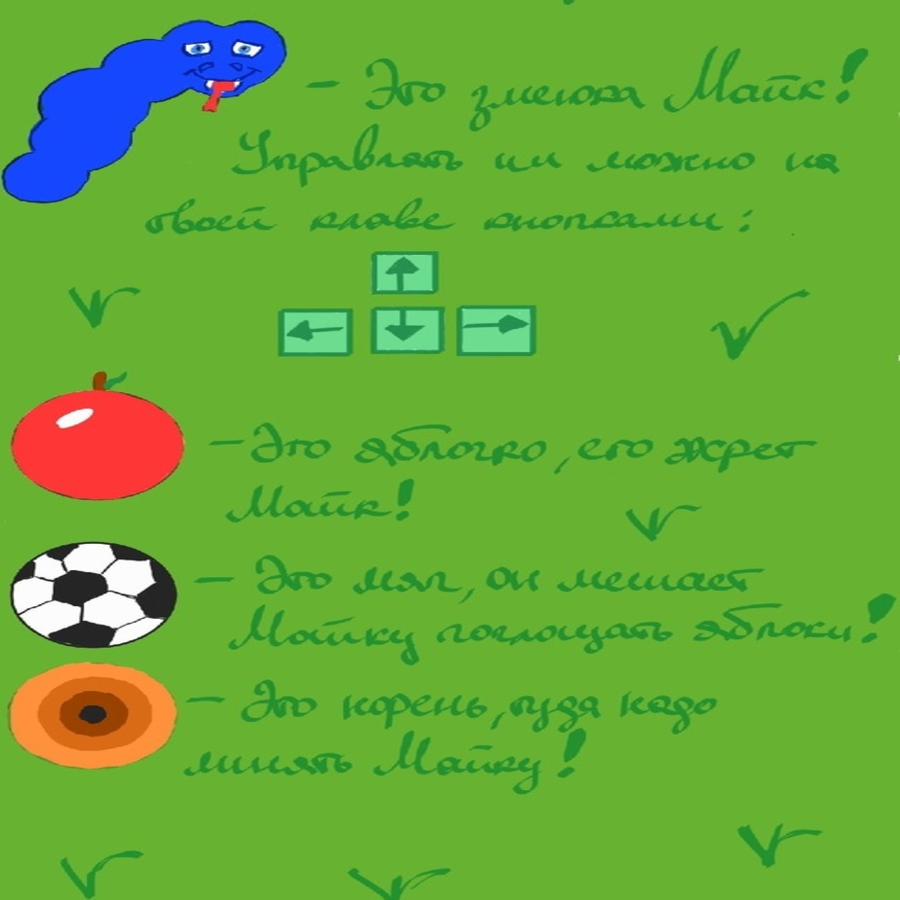 - Это змеюка Майк!
Управлять им можно на
твоей клаве кнопками:
- Это яблочко, его жрет
Майк!
- Это мяч, он мешает
Майку поглощать яблоки!
- Это корень, туда надо
линять Майку!